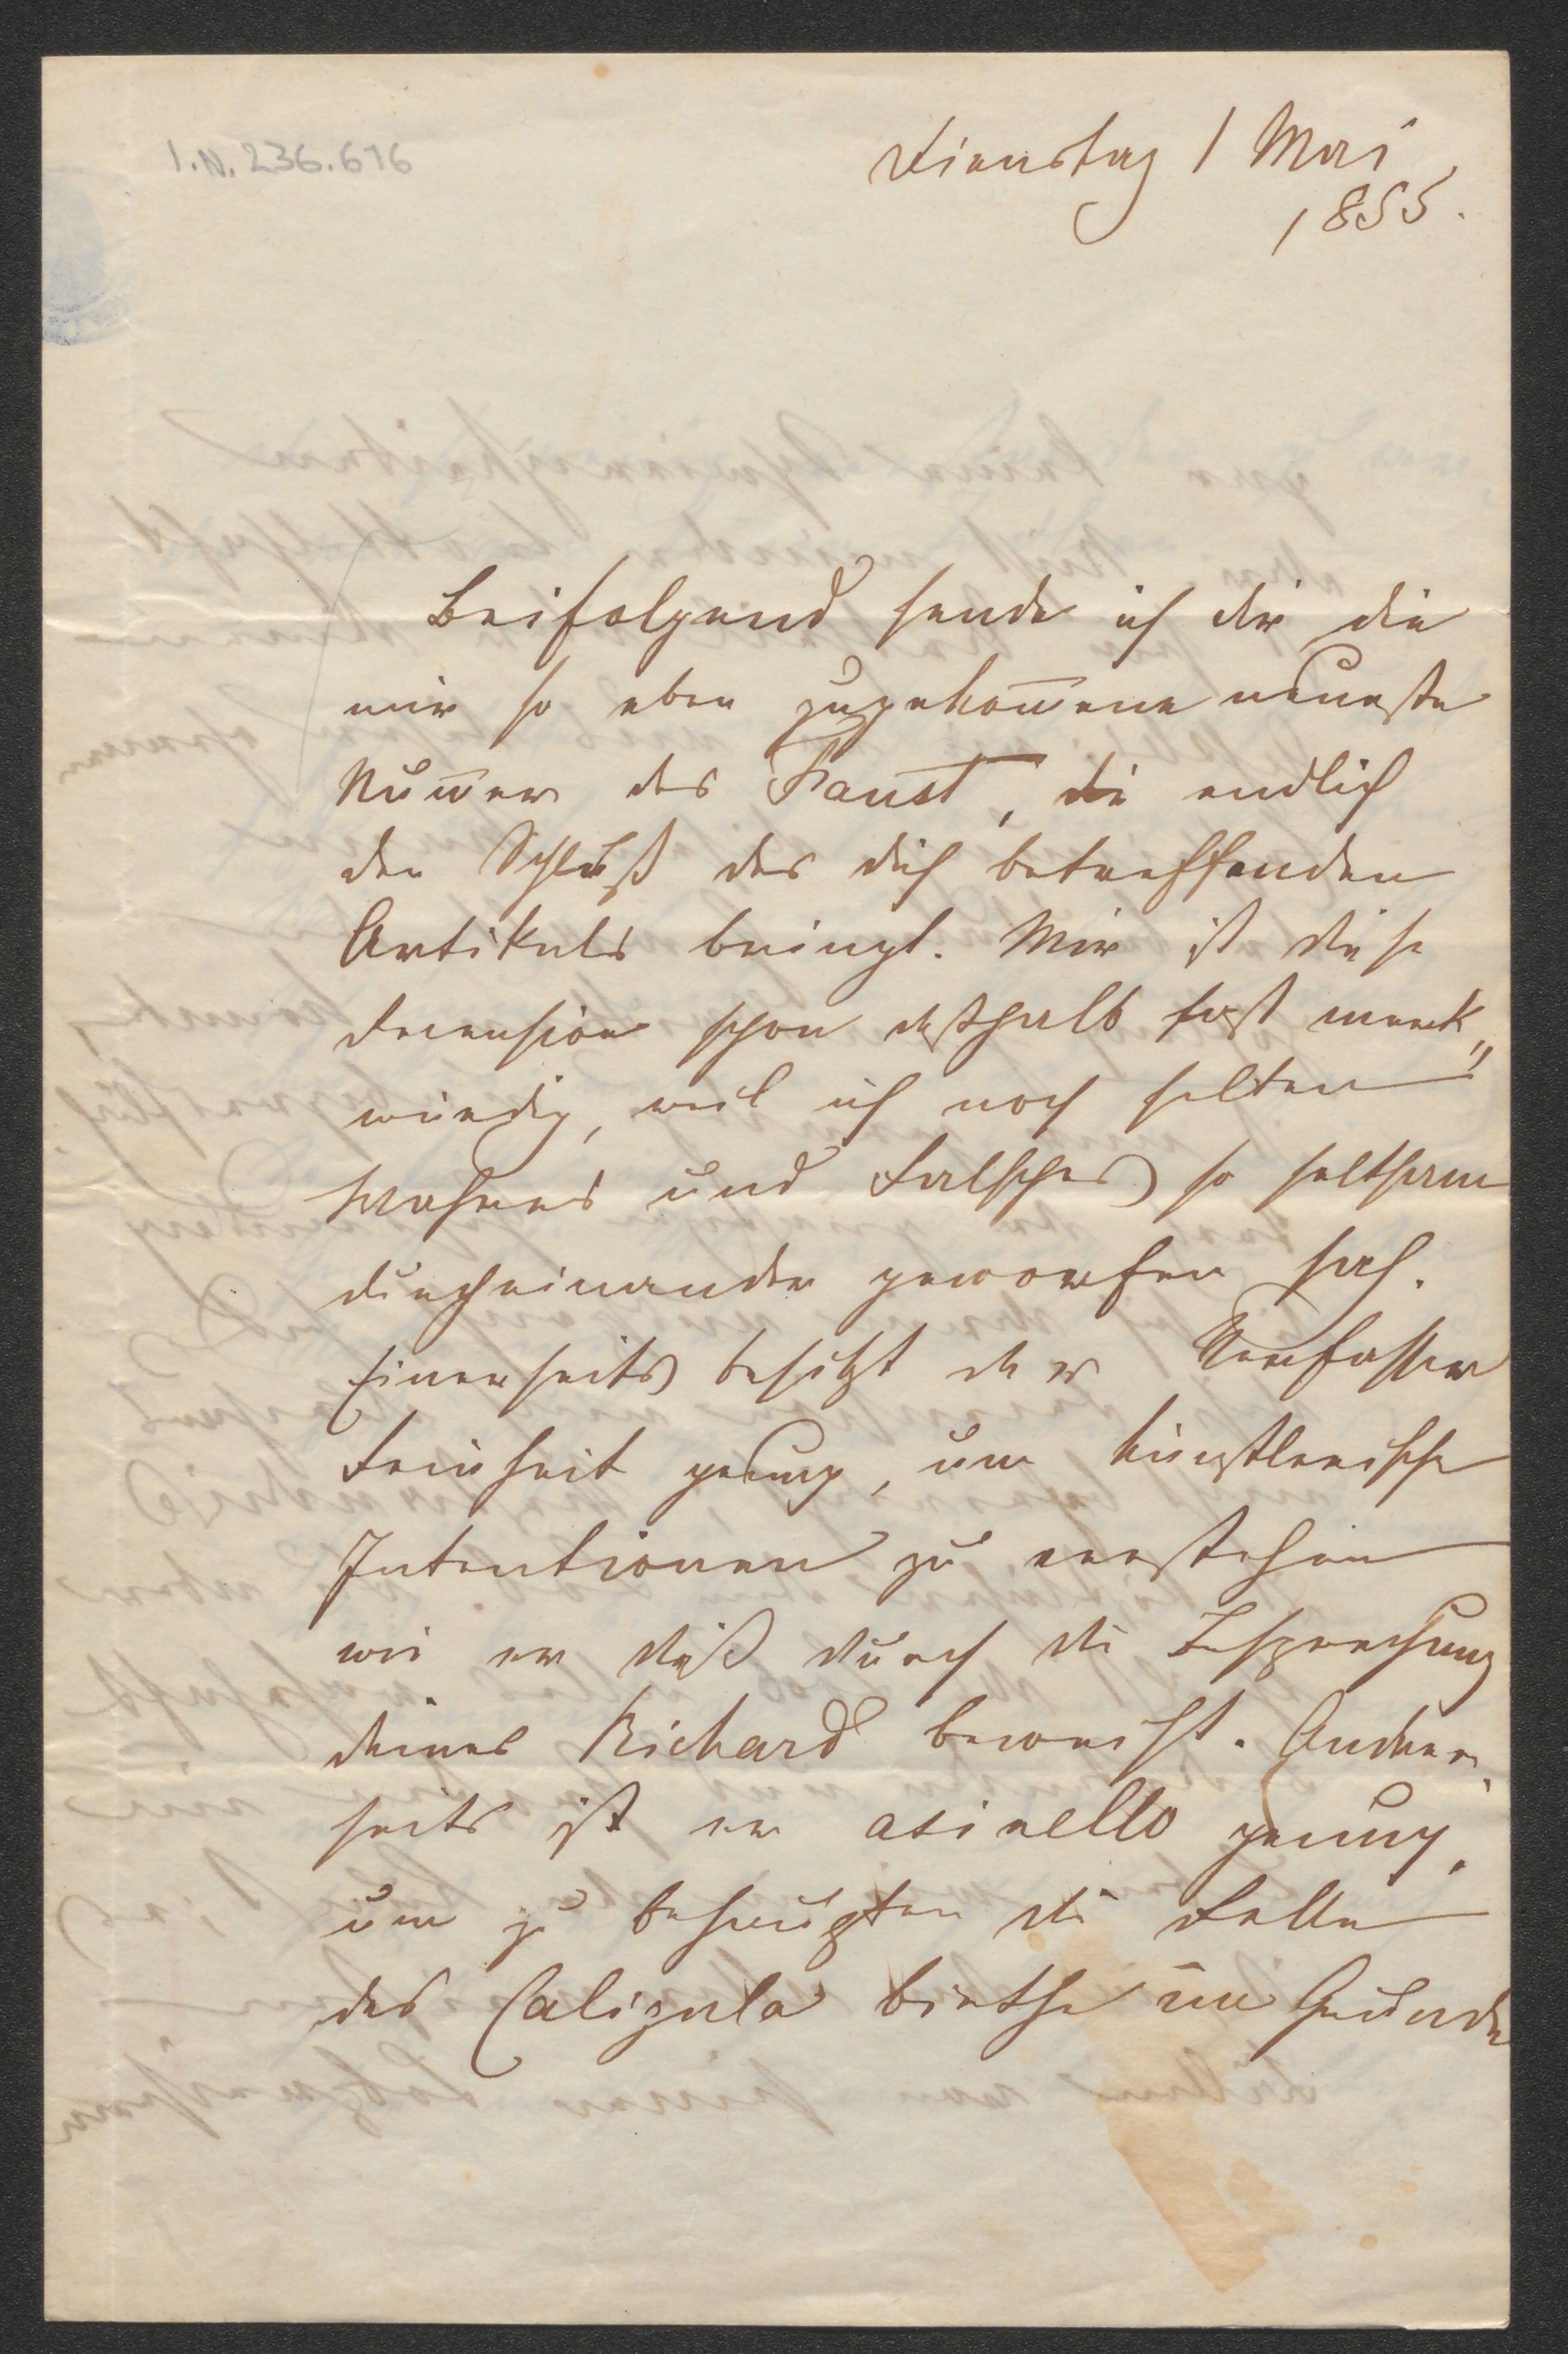 I.N. 236.616
Dienstag 1 Mai
1855.
Beifolgend sende ich dir die
mir so eben zugekom̄ene neueste
Num̄er des Faust, die endlich
den Schluß des dich betreffenden
Artikels bringt. Mir ist diese
Recension schon deßhalb fast merk„
würdig, weil ich noch selten
Wahres und Falsches so seltsam
durcheinander geworfen sah.
Einerseits besitzt der Verfasser
Feinheit genug, um künstlerische
Intentionen zu verstehen
wie er dieß durch die Besprechung
deines Richard beweist. Andrer„
seits ist er asinello genug,
um zu behaupten die Rolle
des Caligula biethe im Grunde